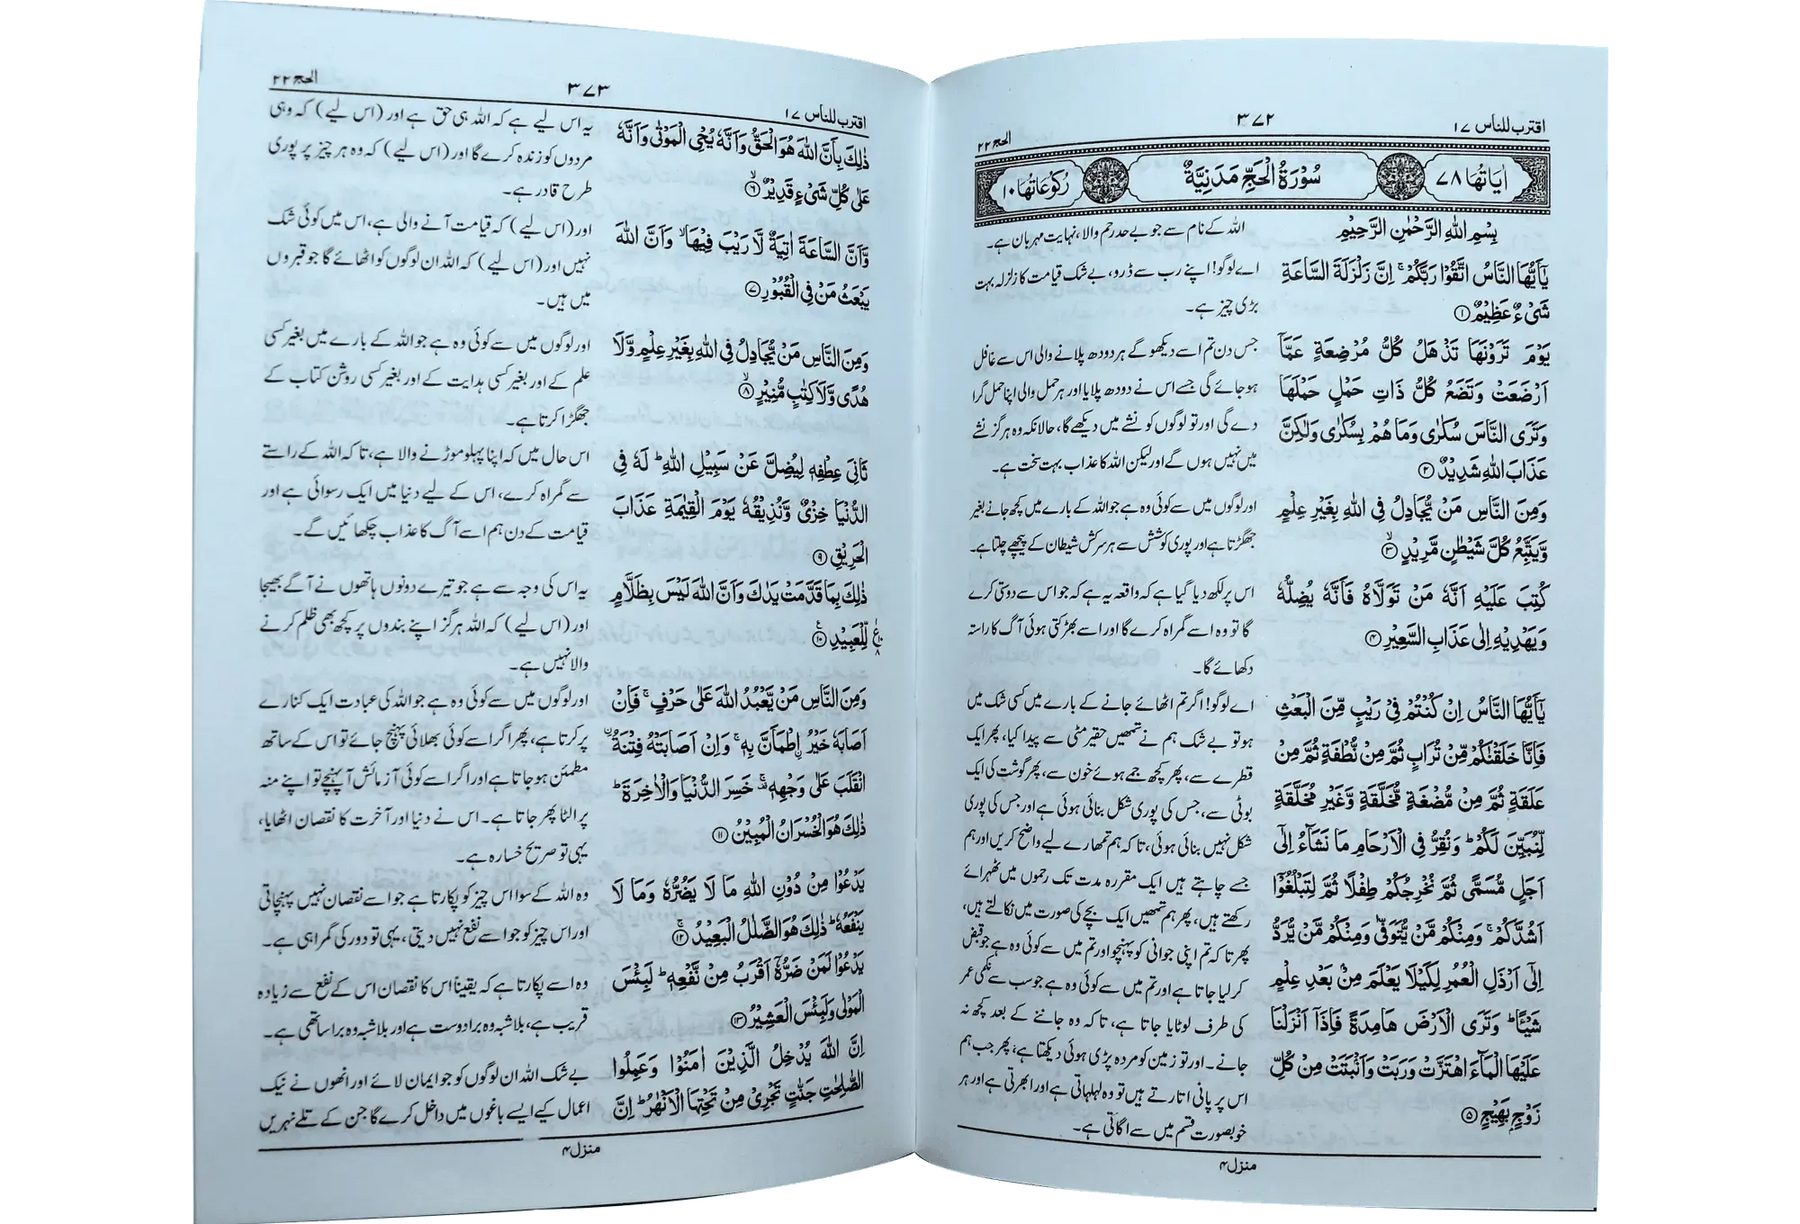 اقترب للناس ۱۷
۳۷۲
الحج ۲۲
اٰيَاتُهَا ۷۸
سُوْرَةُ الْحَجِّ مَدَنِيَّةٌ
رُكُوْعَاتُهَا ۱۰
بِسْمِ اللّٰهِ الرَّحْمٰنِ الرَّحِيْمِ
يٰۤاَيُّهَا النَّاسُ اتَّقُوْا رَبَّكُمْ ۚ اِنَّ زَلْزَلَةَ السَّاعَةِ
شَيْءٌ عَظِيْمٌ ۱
يَوْمَ تَرَوْنَهَا تَذْهَلُ كُلُّ مُرْضِعَةٍ عَمَّاۤ
اَرْضَعَتْ وَتَضَعُ كُلُّ ذَاتِ حَمْلٍ حَمْلَهَا
وَتَرَى النَّاسَ سُكٰرٰى وَمَا هُمْ بِسُكٰرٰى وَلٰكِنَّ
عَذَابَ اللّٰهِ شَدِيْدٌ ۲
وَمِنَ النَّاسِ مَنْ يُّجَادِلُ فِي اللّٰهِ بِغَيْرِ عِلْمٍ
وَّيَتَّبِعُ كُلَّ شَيْطٰنٍ مَّرِيْدٍ ۙ ۳
كُتِبَ عَلَيْهِ اَنَّهٗ مَنْ تَوَلَّاهُ فَاَنَّهٗ يُضِلُّهٗ
وَيَهْدِيْهِ اِلٰى عَذَابِ السَّعِيْرِ ۴
يٰۤاَيُّهَا النَّاسُ اِنْ كُنْتُمْ فِيْ رَيْبٍ مِّنَ الْبَعْثِ
فَاِنَّا خَلَقْنٰكُمْ مِّنْ تُرَابٍ ثُمَّ مِنْ نُّطْفَةٍ ثُمَّ مِنْ
عَلَقَةٍ ثُمَّ مِنْ مُّضْغَةٍ مُّخَلَّقَةٍ وَّغَيْرِ مُخَلَّقَةٍ
لِّنُبَيِّنَ لَكُمْ ؕ وَنُقِرُّ فِي الْاَرْحَامِ مَا نَشَآءُ اِلٰۤى
اَجَلٍ مُّسَمًّى ثُمَّ نُخْرِجُكُمْ طِفْلًا ثُمَّ لِتَبْلُغُوْۤا
اَشُدَّكُمْ ۚ وَمِنْكُمْ مَّنْ يُّتَوَفّٰى وَمِنْكُمْ مَّنْ يُّرَدُّ
اِلٰۤى اَرْذَلِ الْعُمُرِ لِكَيْلَا يَعْلَمَ مِنْۢ بَعْدِ عِلْمٍ
شَيْـًٔا ؕ وَتَرَى الْاَرْضَ هَامِدَةً فَاِذَاۤ اَنْزَلْنَا
عَلَيْهَا الْمَآءَ اهْتَزَّتْ وَرَبَتْ وَاَنْۢبَتَتْ مِنْ كُلِّ
زَوْجٍۭ بَهِيْجٍ ۵
اللہ کے نام سے جو بے حد رحم والا، نہایت مہربان ہے۔
اے لوگو! اپنے رب سے ڈرو، بے شک قیامت کا زلزلہ بہت
بڑی چیز ہے۔
جس دن تم اسے دیکھو گے ہر دودھ پلانے والی اس سے غافل
ہو جائے گی جسے اس نے دودھ پلایا اور ہر حمل والی اپنا حمل گرا
دے گی اور تو لوگوں کو نشے میں دیکھے گا، حالانکہ وہ ہرگز نشے
میں نہیں ہوں گے اور لیکن اللہ کا عذاب بہت سخت ہے۔
اور لوگوں میں سے کوئی وہ ہے جو اللہ کے بارے میں کچھ جانے بغیر
جھگڑتا ہے اور پوری کوشش سے ہر سرکش شیطان کے پیچھے چلتا ہے۔
اس پر لکھ دیا گیا ہے کہ واقعہ یہ ہے کہ جو اس سے دوستی کرے
گا تو وہ اسے گمراہ کرے گا اور اسے بھڑکتی ہوئی آگ کا راستہ
دکھائے گا۔
اے لوگو! اگر تم اٹھائے جانے کے بارے میں کسی شک میں
ہو تو بے شک ہم نے تمھیں حقیر مٹی سے پیدا کیا، پھر ایک
قطرے سے، پھر کچھ جمے ہوئے خون سے، پھر گوشت کی ایک
بوٹی سے، جس کی پوری شکل بنائی ہوئی ہے اور جس کی پوری
شکل نہیں بنائی ہوئی، تا کہ ہم تمھارے لیے واضح کریں اور ہم
جسے چاہتے ہیں ایک مقررہ مدت تک رحموں میں ٹھہرائے
رکھتے ہیں، پھر ہم تمھیں ایک بچے کی صورت میں نکالتے ہیں،
پھر تا کہ تم اپنی جوانی کو پہنچو اور تم میں سے کوئی وہ ہے جو قبض
کر لیا جاتا ہے اور تم میں سے کوئی وہ ہے جو سب سے نکمی عمر
کی طرف لوٹایا جاتا ہے، تا کہ وہ جاننے کے بعد کچھ نہ
جانے۔ اور تو زمین کو مردہ پڑی ہوئی دیکھتا ہے، پھر جب ہم
اس پر پانی اتارتے ہیں تو وہ لہلہاتی ہے اور ابھرتی ہے اور ہر
خوبصورت قسم میں سے اگاتی ہے۔
منزل ۴
اقترب للناس ۱۷
۳۷۳
الحج ۲۲
ذٰلِكَ بِاَنَّ اللّٰهَ هُوَ الْحَقُّ وَاَنَّهٗ يُحْيِ الْمَوْتٰى وَاَنَّهٗ
عَلٰى كُلِّ شَيْءٍ قَدِيْرٌ ۙ ۶
وَّاَنَّ السَّاعَةَ اٰتِيَةٌ لَّا رَيْبَ فِيْهَا ۙ وَاَنَّ اللّٰهَ
يَبْعَثُ مَنْ فِي الْقُبُوْرِ ۷
وَمِنَ النَّاسِ مَنْ يُّجَادِلُ فِي اللّٰهِ بِغَيْرِ عِلْمٍ وَّلَا
هُدًى وَّلَا كِتٰبٍ مُّنِيْرٍ ۙ ۸
ثَانِيَ عِطْفِهٖ لِيُضِلَّ عَنْ سَبِيْلِ اللّٰهِ ؕ لَهٗ فِي
الدُّنْيَا خِزْيٌ وَّنُذِيْقُهٗ يَوْمَ الْقِيٰمَةِ عَذَابَ
الْحَرِيْقِ ۹
ذٰلِكَ بِمَا قَدَّمَتْ يَدٰكَ وَاَنَّ اللّٰهَ لَيْسَ بِظَلَّامٍ
لِّلْعَبِيْدِ ۱۰
وَمِنَ النَّاسِ مَنْ يَّعْبُدُ اللّٰهَ عَلٰى حَرْفٍ ۚ فَاِنْ
اَصَابَهٗ خَيْرُ ۨاطْمَاَنَّ بِهٖ ۚ وَاِنْ اَصَابَتْهُ فِتْنَةُ ۨ
انْقَلَبَ عَلٰى وَجْهِهٖ ۫ۚ خَسِرَ الدُّنْيَا وَالْاٰخِرَةَ ؕ
ذٰلِكَ هُوَ الْخُسْرَانُ الْمُبِيْنُ ۱۱
يَدْعُوْا مِنْ دُوْنِ اللّٰهِ مَا لَا يَضُرُّهٗ وَمَا لَا
يَنْفَعُهٗ ؕ ذٰلِكَ هُوَ الضَّلٰلُ الْبَعِيْدُ ۚ ۱۲
يَدْعُوْا لَمَنْ ضَرُّهٗۤ اَقْرَبُ مِنْ نَّفْعِهٖ ؕ لَبِئْسَ
الْمَوْلٰى وَلَبِئْسَ الْعَشِيْرُ ۱۳
اِنَّ اللّٰهَ يُدْخِلُ الَّذِيْنَ اٰمَنُوْا وَعَمِلُوا
الصّٰلِحٰتِ جَنّٰتٍ تَجْرِيْ مِنْ تَحْتِهَا الْاَنْهٰرُ ؕ اِنَّ
یہ اس لیے ہے کہ اللہ ہی حق ہے اور (اس لیے) کہ وہی
مردوں کو زندہ کرے گا اور (اس لیے) کہ وہ ہر چیز پر پوری
طرح قادر ہے۔
اور (اس لیے) کہ قیامت آنے والی ہے، اس میں کوئی شک
نہیں اور (اس لیے) کہ اللہ ان لوگوں کو اٹھائے گا جو قبروں
میں ہیں۔
اور لوگوں میں سے کوئی وہ ہے جو اللہ کے بارے میں بغیر کسی
علم کے اور بغیر کسی ہدایت کے اور بغیر کسی روشن کتاب کے
جھگڑا کرتا ہے۔
اس حال میں کہ اپنا پہلو موڑنے والا ہے، تا کہ اللہ کے راستے
سے گمراہ کرے، اس کے لیے دنیا میں ایک رسوائی ہے اور
قیامت کے دن ہم اسے آگ کا عذاب چکھائیں گے۔
یہ اس کی وجہ سے ہے جو تیرے دونوں ہاتھوں نے آگے بھیجا
اور (اس لیے) کہ اللہ ہرگز اپنے بندوں پر کچھ بھی ظلم کرنے
والا نہیں ہے۔
اور لوگوں میں سے کوئی وہ ہے جو اللہ کی عبادت ایک کنارے
پر کرتا ہے، پھر اگر اسے کوئی بھلائی پہنچ جائے تو اس کے ساتھ
مطمئن ہو جاتا ہے اور اگر اسے کوئی آزمائش آ پہنچے تو اپنے منہ
پر الٹا پھر جاتا ہے۔ اس نے دنیا اور آخرت کا نقصان اٹھایا،
یہی تو صریح خسارہ ہے۔
وہ اللہ کے سوا اس چیز کو پکارتا ہے جو اسے نقصان نہیں پہنچاتی
اور اس چیز کو جو اسے نفع نہیں دیتی، یہی تو دور کی گمراہی ہے۔
وہ اسے پکارتا ہے کہ یقیناً اس کا نقصان اس کے نفع سے زیادہ
قریب ہے، بلاشبہ وہ برا دوست ہے اور بلاشبہ وہ برا ساتھی ہے۔
بے شک اللہ ان لوگوں کو جو ایمان لائے اور انھوں نے نیک
اعمال کیے ایسے باغوں میں داخل کرے گا جن کے تلے نہریں
منزل ۴